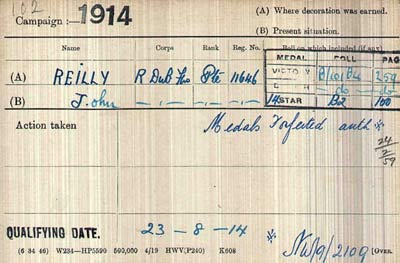 102
Campaign :— 1914
(A) Where decoration was earned.
(B) Present situation.
Name Corps Rank Reg. No. Roll on which included (if any).
MEDAL ROLL PAGE
(A) REILLY R Dub Fus Pte 11646 VICTORY B/101 B4 259
(B) John —"— —"— —"— do do
14 STAR B2 100
Action taken Medals Forfeited auth ※
24
2
59
QUALIFYING DATE. 23 - 8 - 14 ※ NW/9/2109
(6 34 46) W234—HP5590 500,000 4/19 HWV(P240) K608 [OVER.